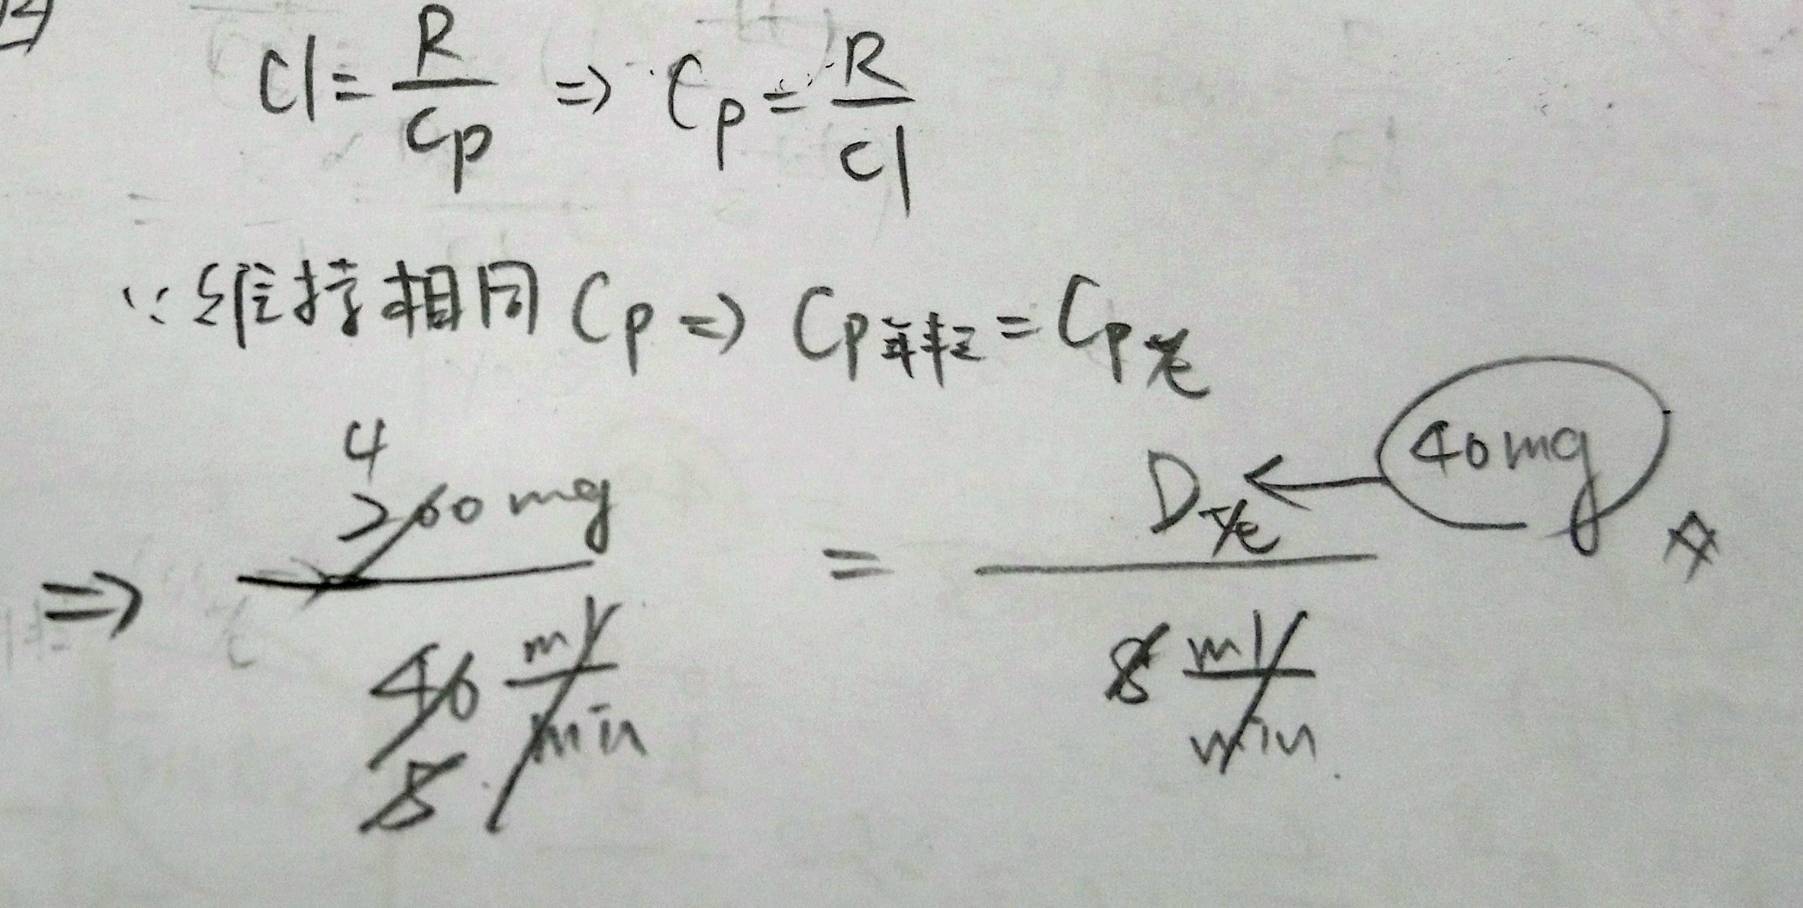 Cl = R/Cp ⇒ Cp = R/Cl
∵ 维持相同 Cp ⇒ Cp年轻 = Cp老
⇒ 200mg / 40 ml/min = D老 / 8 ml/min ← 40mg
4
5